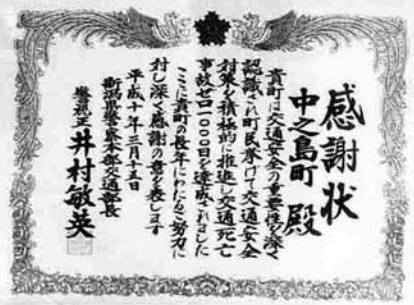 感謝状
中之島町 殿
貴町は交通安全の重要性を深く
認識され町民挙げて交通安全
対策を積極的に推進し交通死亡
事故ゼロ一〇〇〇日を達成されました
ここに貴町の長年にわたるご努力に
対し深く感謝の意を表します
平成十年三月十五日
新潟県警察本部交通部長
警視正 井村敏英